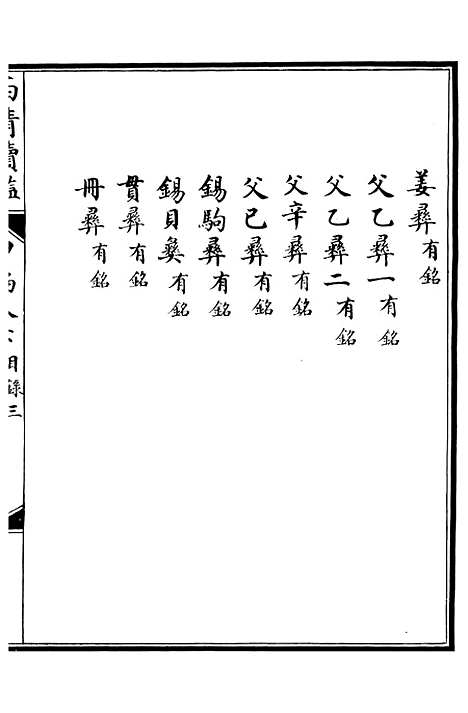 姜彞有銘
父乙彞一有銘
父乙彞二有銘
父辛彞有銘
父已彞有銘
錫駒彞有銘
錫貝彞有銘
貫彞有銘
冊彞有銘
西清續鑑
目錄三